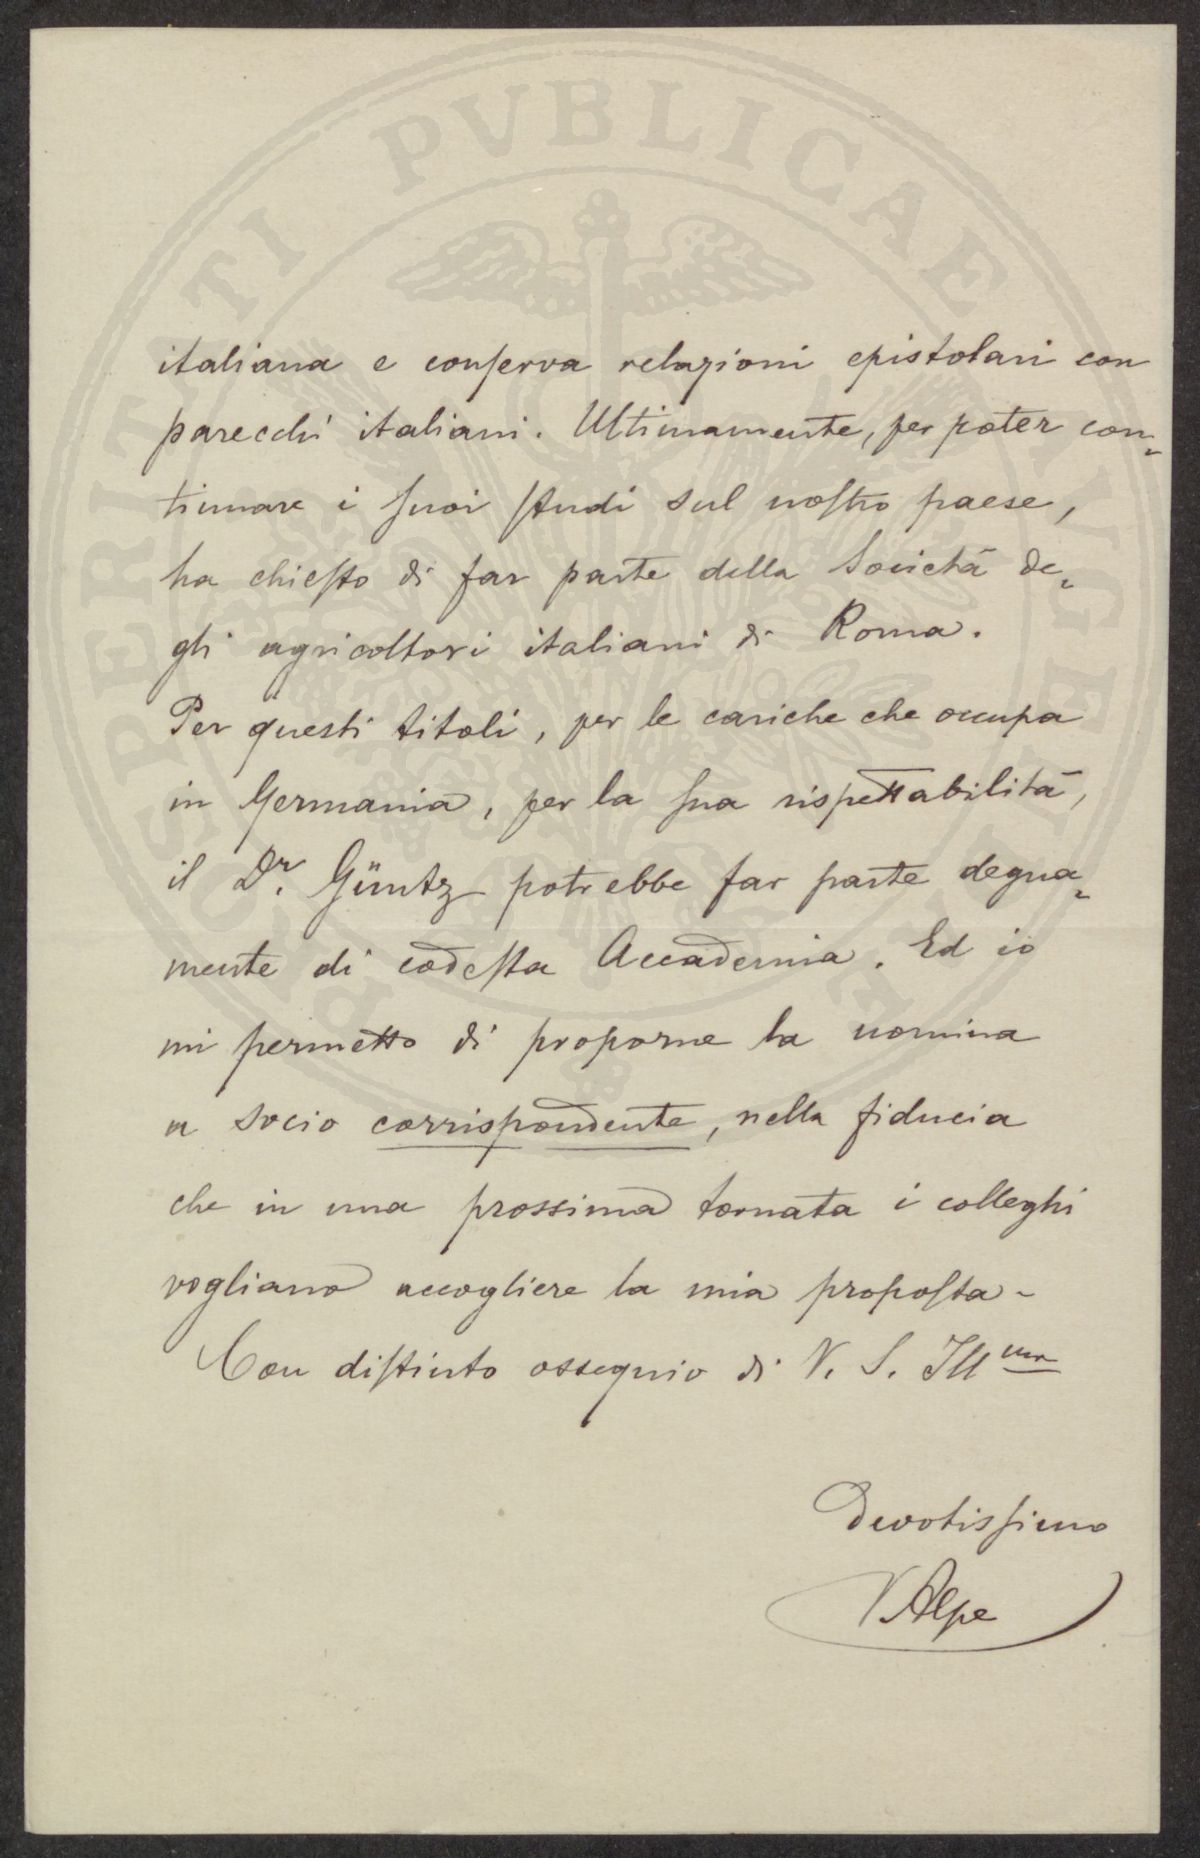 italiana e conserva relazioni epistolari con
parecchi italiani. Ultimamente, per poter con-
tinuare i suoi studi sul nostro paese,
ha chiesto di far parte della Società de-
gli agricoltori italiani di Roma.
Per questi titoli, per le cariche che occupa
in Germania, per la sua rispettabilità,
il Dr. Güntz potrebbe far parte degna-
mente di codesta Accademia. Ed io
mi permetto di proporne la nomina
a socio corrispondente, nella fiducia
che in una prossima tornata i colleghi
vogliano accogliere la mia proposta -
Con distinto ossequio di V. S. Ill ma
Devotissimo
V Alpe